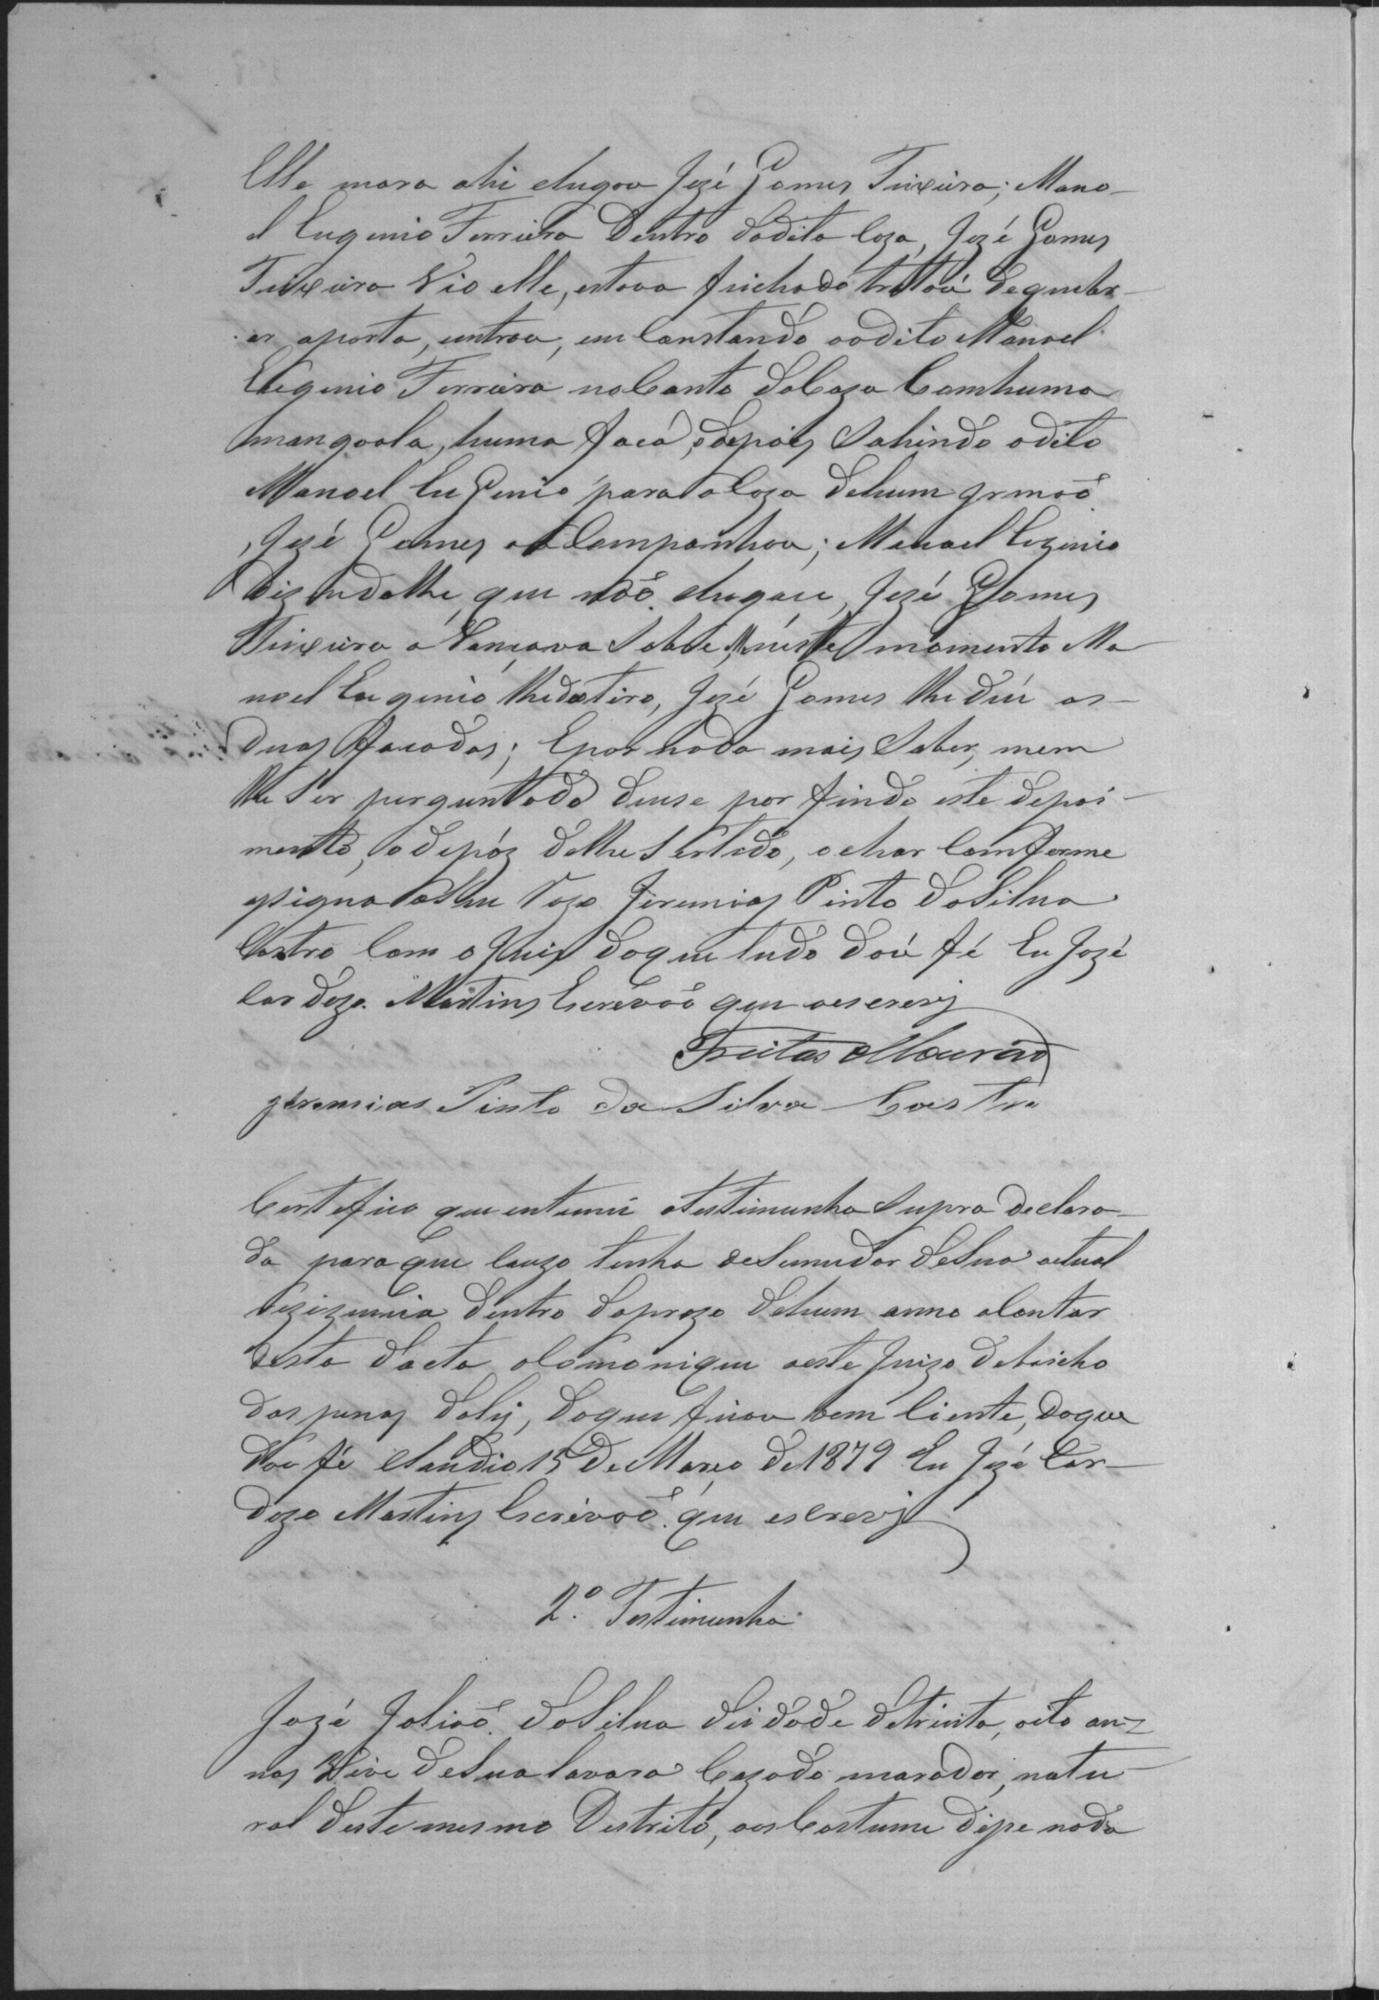 Elle mora ahi chegou Jozé Gomes Teixeira; Mano-
el Eugenio Ferreira Dentro dadita Caza, Jozé Gomes
Teixeira Vio elle, estava feichado tratou dequebr-
ar aporta, entrou, emContando oodito Manoel
Eugenio Ferreira noCanto daCaza Comhuma
mangoala, huma faca, depois Sahindo odito
Manoel EuGenio para aCaza dehum Irmaõ
, Jozé Gomes oaCompanhou; Manoel Eogenio
dizendolhe que naõ chegace, Jozé Gomes
Teixeira aVançava Sobre, neste momento Ma
noel Eugenio lhedatiro, Jozé Gomes lhe deu as-
duas facadas; Epornada mais Saber, nem
lhe Ser perguntado deuse por findo este depoi-
mento, odepóz delhe Ser lido, o achar Comforme
asigna oSeu Vogo Jeremias Pinto daSilva
Castro Com oJuiz doque tudo doú fé Eu Jozé
Cardozo Martins Escrivaõ que oescrevy
Freitas Mourão
geremias Pinto da Silva Castro

Certefico que entemei atestimunha Supra declara-
da para que Cauzo tenha deSemudar deSua actual
Rezizencia dentro doprazo dehum anno aContar
desta dacta oComonique aeste Juizo debaicho
das penas daley, doque ficou bem Ciente, doque
dou fé Claudio 15 De Março de 1879 Eu Jozé Car-
dozo Martins Escrivaõ que escrevy

2.º Testimunha

Jozé Joliaõ daSilva deidade detrinta, oito an-
nos Vive deSua lavora Cazado morador, natu-
ral deste mesmo Destrito, aosCostume dipe nada